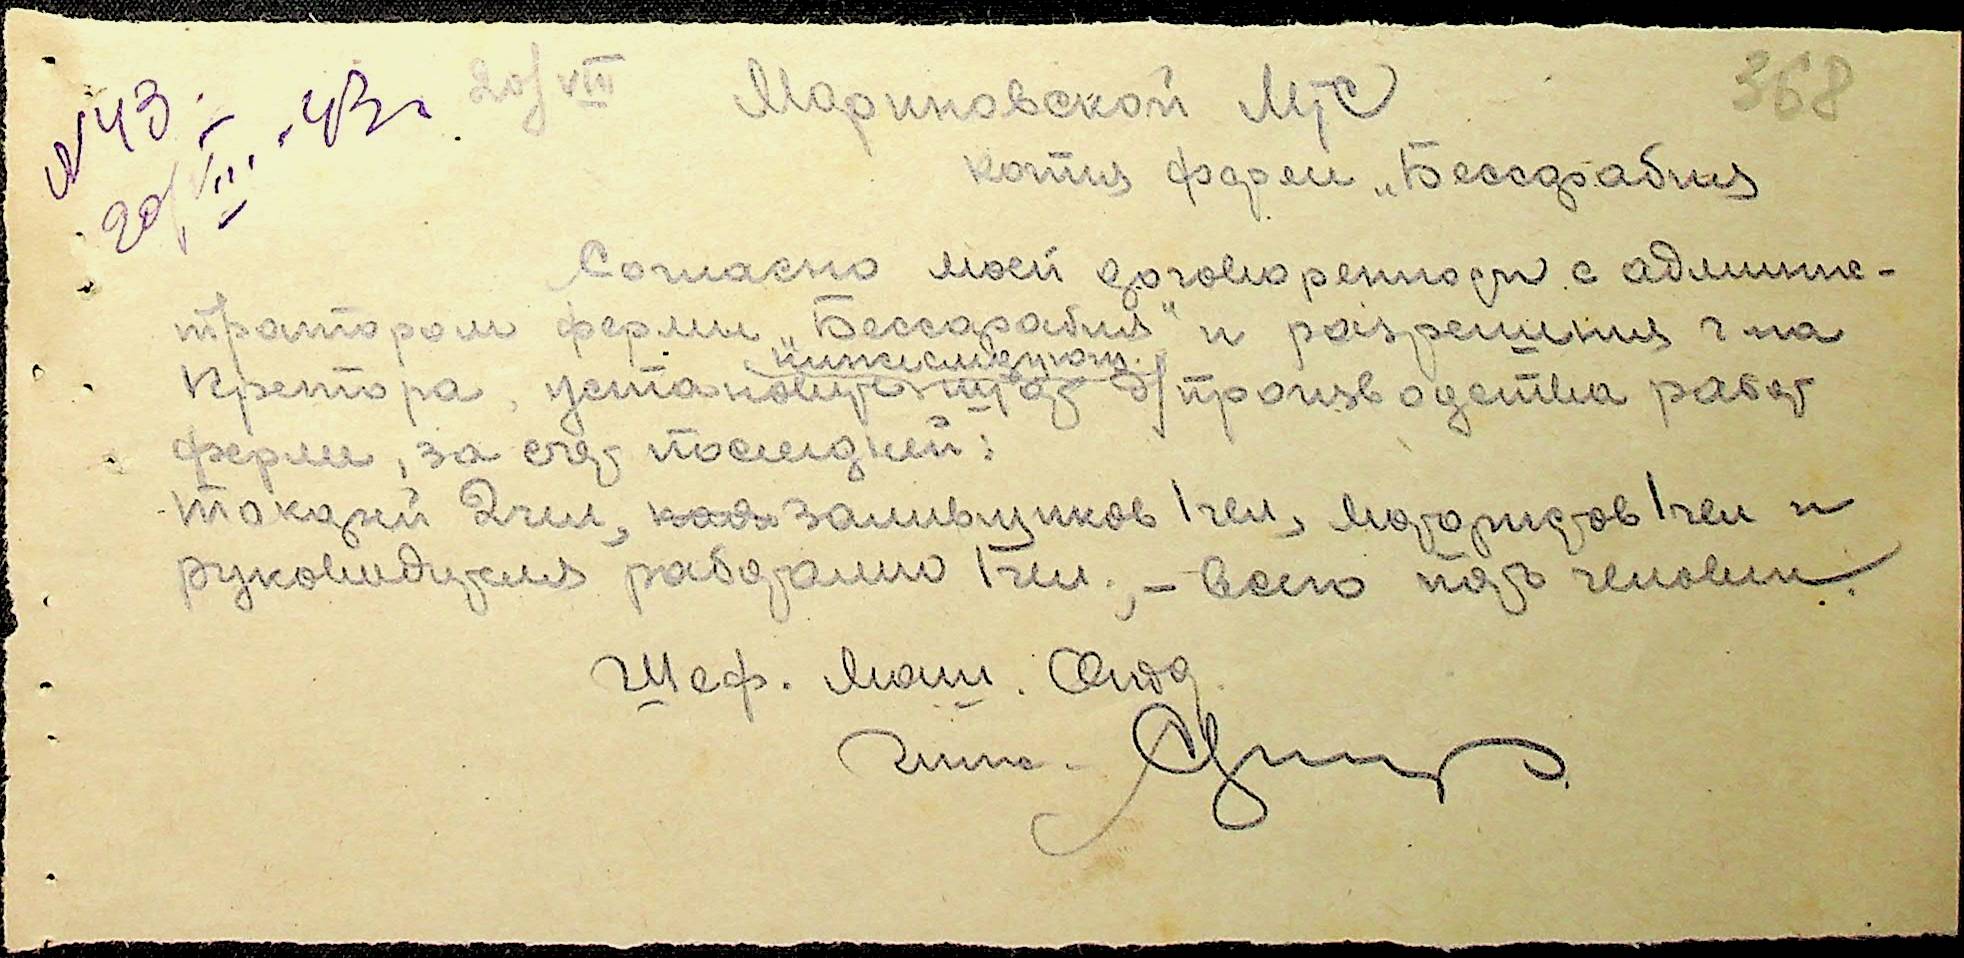 № 43.
20/VIII. - 43 г.
20/VIII
368
Мариновской МТС
копия ферми „Бессарабия
Согласно моей договоренности с админис-
тратором ферми „Бессарабия" и разрешения г-на
Кретора, установить
нижеследующ.
штат д/производства работ
ферми, за счет последней:
токарей 2 чел, заливщиков 1 чел, мотористов 1 чел и
руководителя работами 1 чел., - всего пять человек.
Шеф. Маш. Отд.